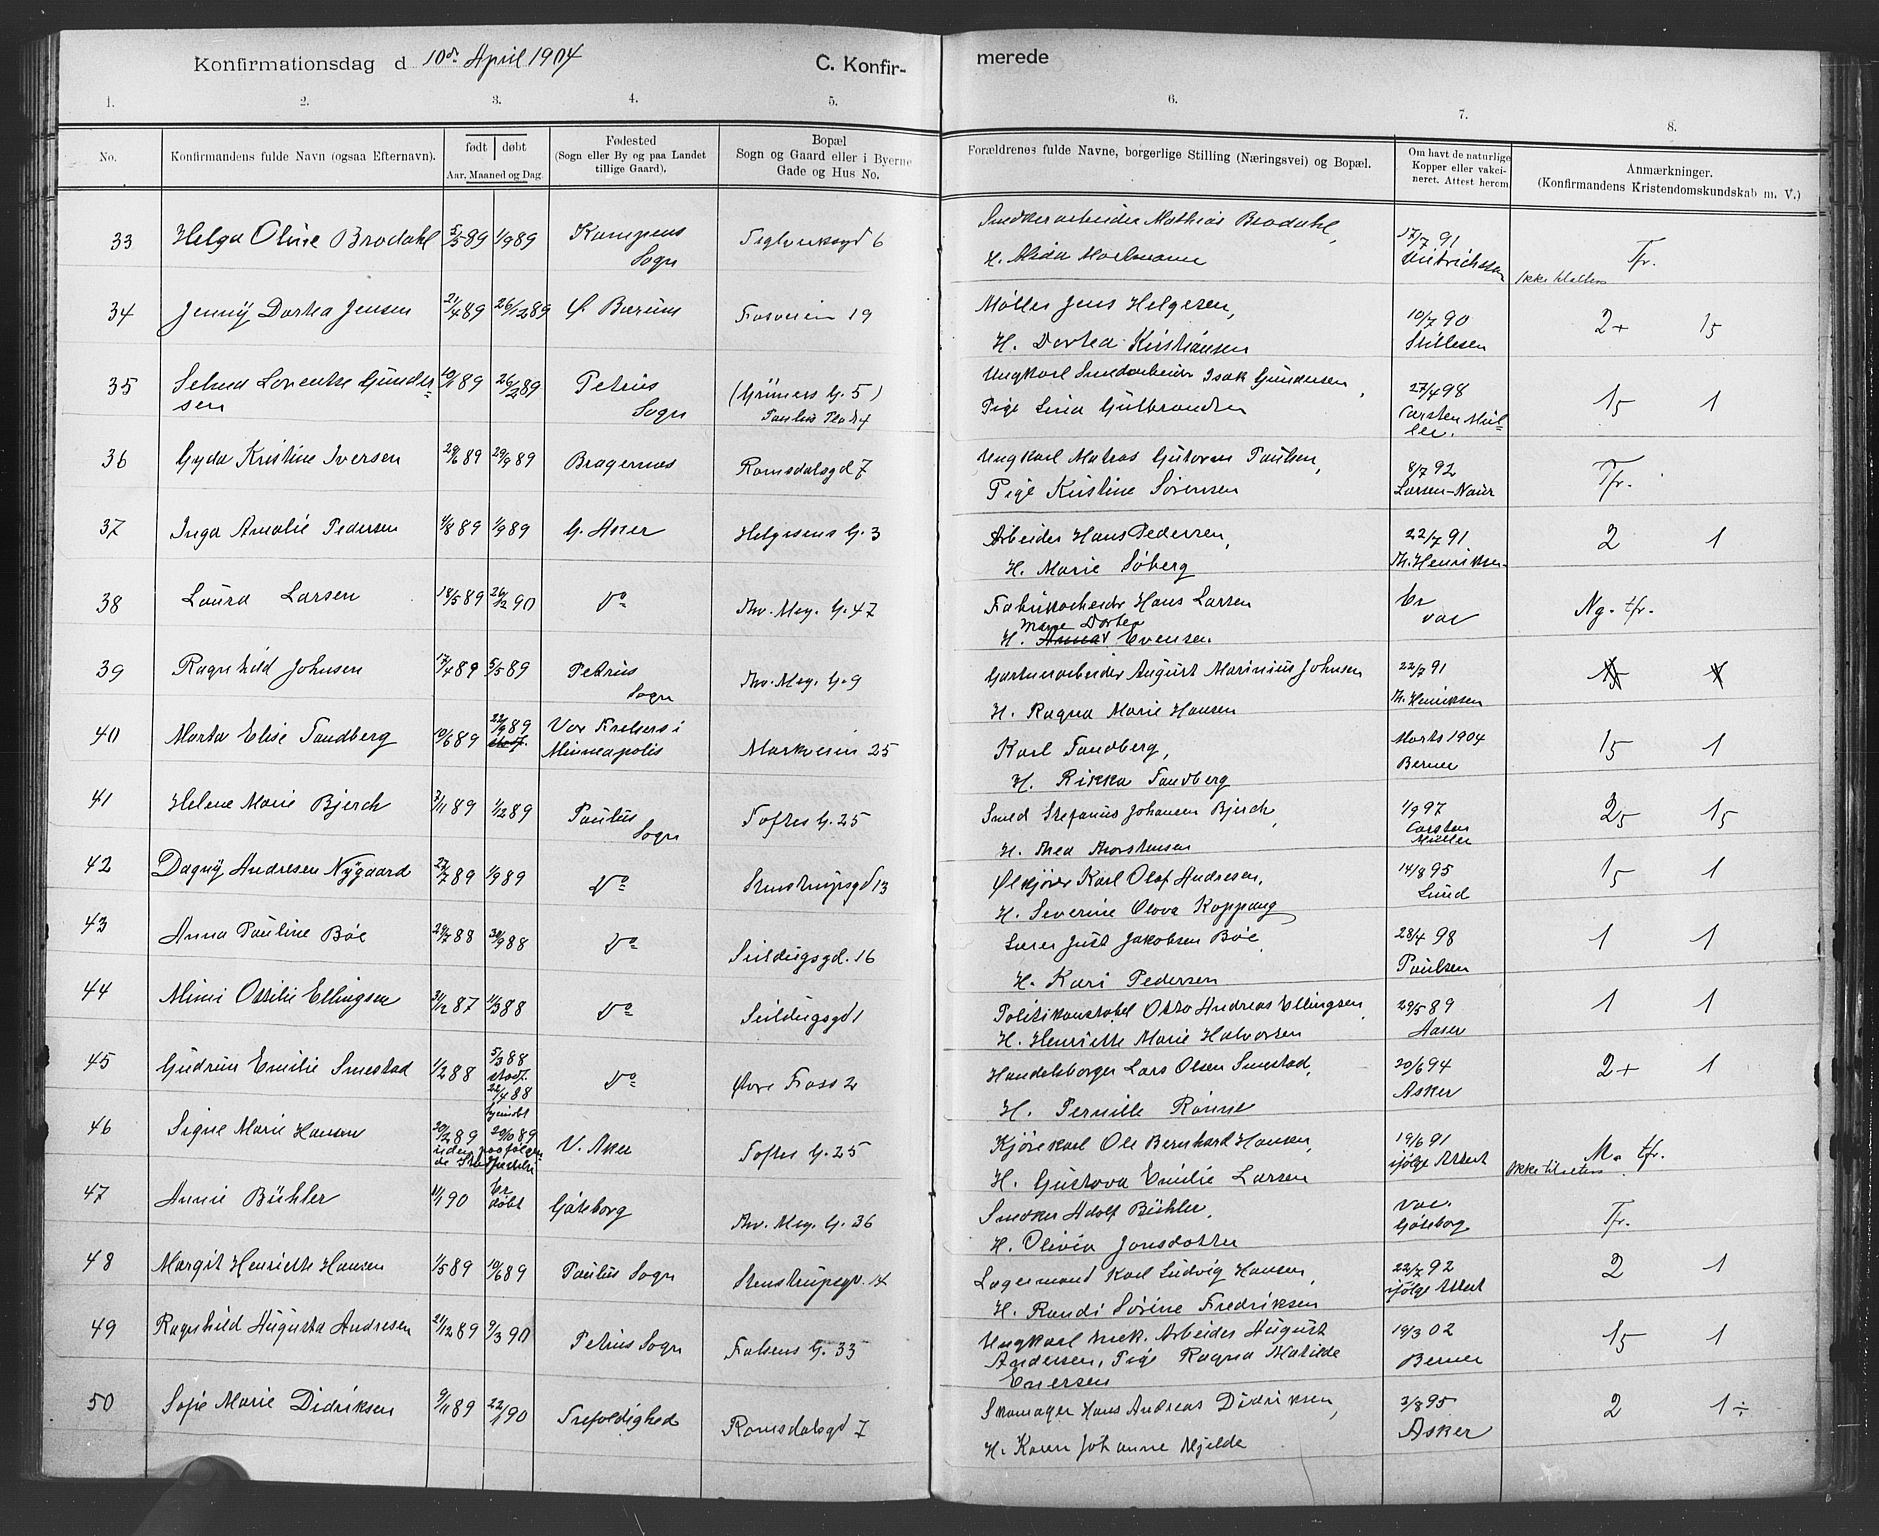 Konfirmationsdag d 10de April 1904 C. Konfir- merede
1. 2. 3. 4. 5. 6. 7. 8.
No. Konfirmandens fulde Navn (ogsaa Efternavn). født døbt Aar, Maaned og Dag. Fødested (Sogn eller By og paa Landet tillige Gaard). Bopæl Sogn og Gaard eller i Byerne Gade og Hus No. Forældrenes fulde Navne, borgerlige Stilling (Næringsvei) og Bopæl. Om havt de naturlige Kopper eller vakcineret. Attest herom Anmærkninger. (Konfirmandens Kristendomskundskab m. V.)
33 Helga Oline Brodahl 5/5 89 1/9 89 Kampens Sogn 6 Snedkerarbeider Mathias Brodahl, 17/7 91 Tfr.
H. Alida
34 Jenny Dortea Jensen 21/4 89 26/12 89 Ø. Bærum Fosveien 19 Møller Jens Helgesen, 10/7 90 2+ 15
H. Dortea Kristiansen Stillesen
35 Selma Lorentse Gundersen 10/1 89 26/2 89 Petrus Sogn (Grüners G. 5) Paulus Plads 4 Ungkarl Smedarbeider Isak Gundersen, 27/4 98 15 1
Pige Lina Gulbrandsen Carsten Müller.
36 Gyda Kristine Iversen 29/6 89 29/9 89 Bragernes Romsdalsgd 7 Ungkarl Matros Paulsen, 8/7 92 Tfr.
Pige Kristine Sørensen Larsen-Naur
37 Inga Amalie Pedersen 4/8 89 1/9 89 G. Aker Helgesens G. 3 Arbeider Hans Pedersen, 22/7 91 2 1
H. Marie Søberg Th. Henriksen
38 Laura Larsen 18/5 89 26/12 90 Do Thv. Mey. G. 47 Fabrikarbeider Hans Larsen Er Ng. tfr.
Marie Dortea
H. Anna Evensen. vac
39 Ragnhild Johnsen 17/4 89 5/5 89 Petrus Sogn Thv. Mey. G. 9 Gartnerarbeider August Marinius Johnsen 22/7 91 15 1
H. Ragna Marie Hansen Th. Henriksen
40 Marta Elise Sandberg 10/6 89 22/9 89 Vor Frelsers i Minneapolis Markveien 25 Karl Sandberg, Marts 1904 15 1
H. Rikka Sandberg Berner
41 Helene Marie Bjerch 3/11 89 1/12 89 Paulus Sogn Toftes G. 25 Smed Stefanus Johansen Bjerch, 1/9 97 25 15
H. Thea Thorstensen Carsten Müller
42 Dagny Andresen Nygaard 27/7 89 1/9 89 Do Stenstrupsgd 13 Ølkjører Karl Olaf Andresen, 14/8 95 15 1
H. Severine Olova Koppang Lund
43 Anna Pauline Bøe 29/7 88 30/9 88 Do Seildugsgd. 16 Lærer Just Jakobsen Bøe, 28/4 98 1 1
H. Kari Pedersen Paulsen
44 Mimi Ottilie Ellingsen 31/12 87 11/3 88 Do Seildugsgd 1 Politikonstabel Otto Andreas Ellingsen, 29/5 89 1 1
H. Henriette Marie Halvorsen Aaser
45 Gudrun Emilie Smestad 1/2 88 5/3 88 stadf. 22/4 88 Do Øvre Foss 2 Handelsborger Lars Olsen Smestad, 20/6 94 2+ 1
H. Pernille Rønne Asker
46 Signe Marie Hansen 20/2 89 20/10 89 V. Aker Toftes G. 25 Kjørekarl Ole Bernhard Hansen, 19/6 91 ifølge Attest M. tfr.
H. Gustava Emilie Larsen
47 Annie Bühler 11/1 90 Er døbt Göteborg Thv. Mey. G. 36 Snedker Adolf Bühler, vac. Göteborg Tfr.
H. Olivia Jonsdotter
48 Margit Henriette Hansen 1/5 89 10/6 89 Paulus Sogn Stenstrupsgd. 14 Lagermand Karl Ludvig Hansen, 22/7 92 ifølge Attest 2 1
H. Randi Sørine Fredriksen
49 Ragnhild Augusta Andresen 21/12 89 9/3 90 Petrus Sogn Falsens G. 33 Ungkarl mek. Arbeider August 19/3 02 15 1
Andersen, Pige Ragna Matilde Berner
Enersen
50 Sofie Marie Didriksen 9/11 89 22/1 90 Trefoldighed Romsdalsgd 7 Skomager Hans Andreas Didriksen, 3/8 95 2 1÷
H. Karen Johanne Mjelde Asker